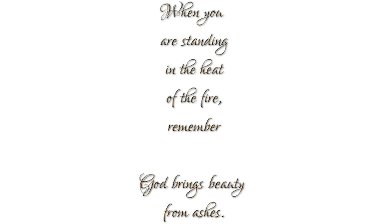 When you
are standing
in the heat
of the fire,
remember
God brings beauty
from ashes.